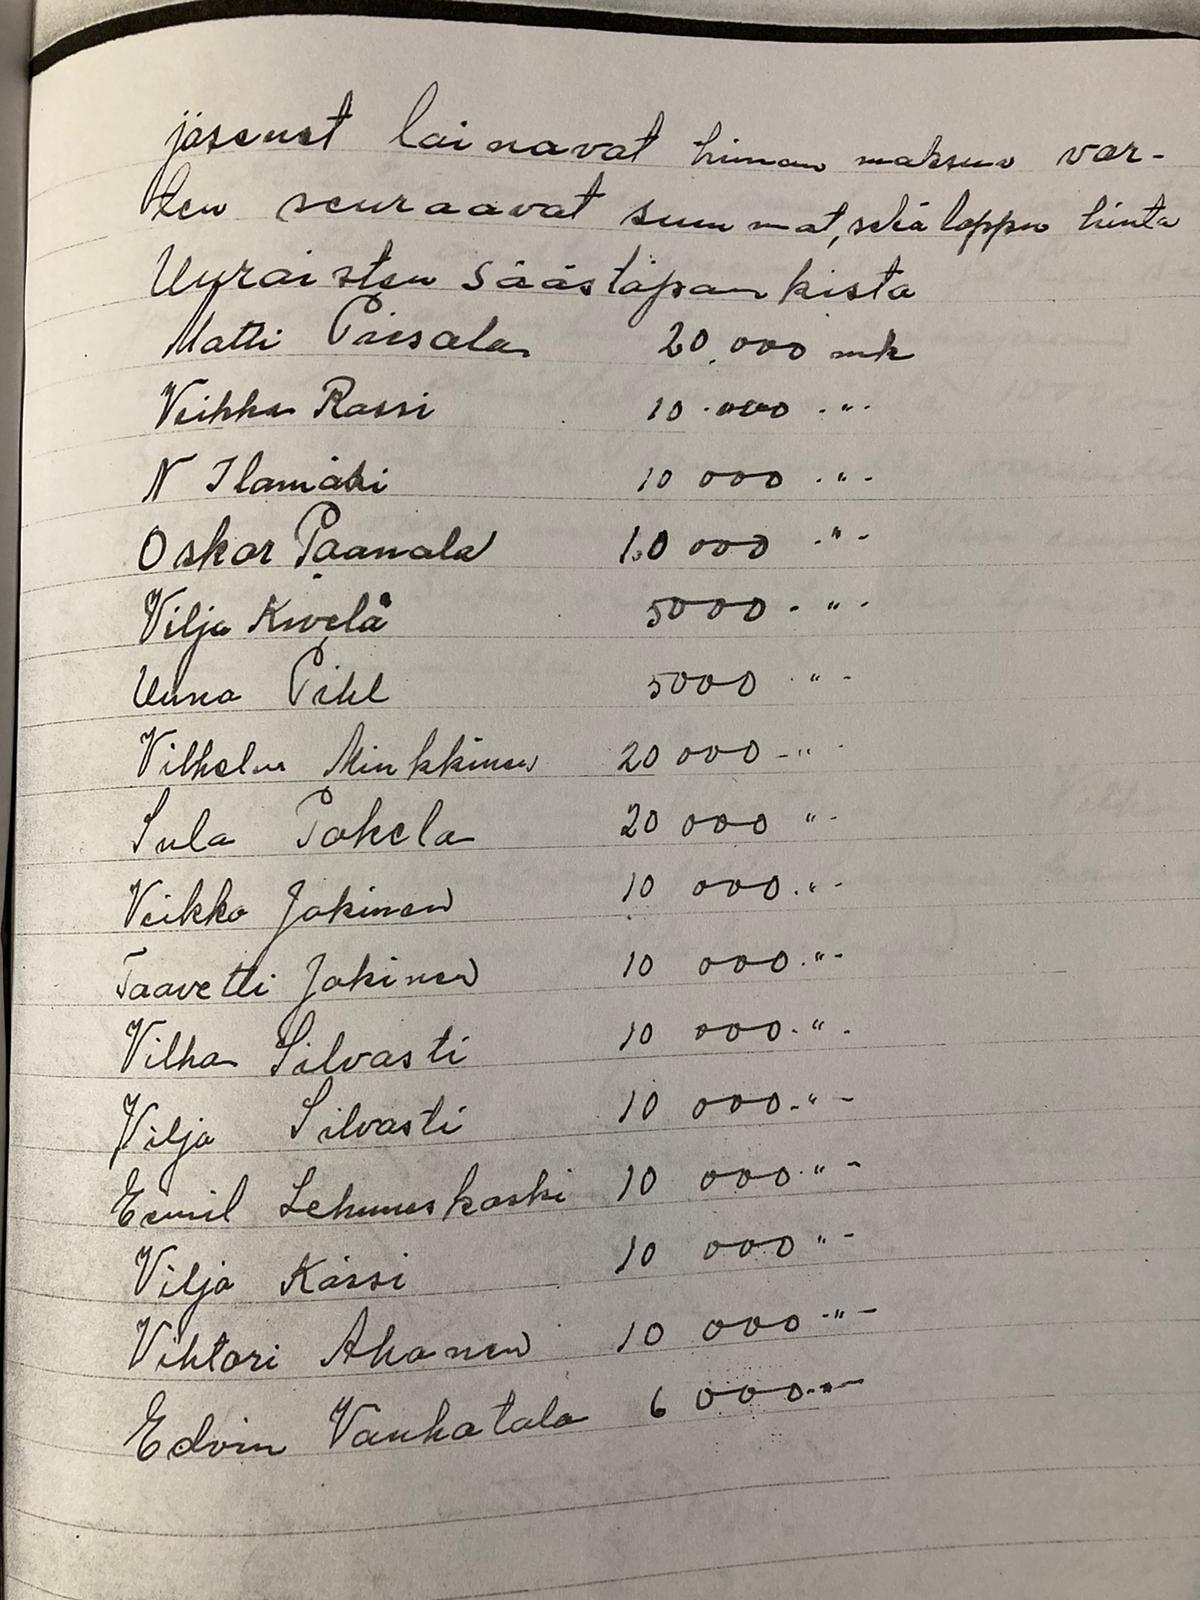 jäsenet lainavat hinnan maksua var-
ten seuraavat summat, sekä loppu hinta
Uuraisten Säästöpankista
Matti Piesala 20.000 mk
Veikko Rossi 10.000 -"-
N Ilamäki 10 000 -"-
Oskar Paanala 10 000 -"-
Vilja Kivelä 5000 -"-
Unna Pihl 5000 -"-
Vilhelm Minkkinen 20 000 -"-
Sula Pohela 20 000 "-
Veikko Jokinen 10 000 -"-
Taavetti Jokinen 10 000 -"-
Vilho Silvasti 10 000 -"-
Vilja Silvasti 10 000 -"-
Eemil Lehmuskoski 10 000 -"-
Vilja Kässi 10 000 "-
Vihtori Ahonen 10 000 -"-
Edvin Vanhatalo 6 000 -"-